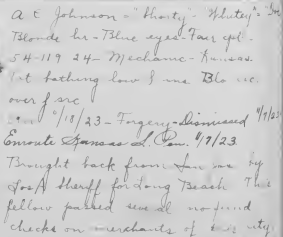 A C Johnson = "Shorty - Whitey" =
Blonde hr - Blue eyes - Fair cpl -
5-4 - 119 24 - Mechanic - Kansas.
low
over
/18/23 - Forgery - Dismissed 11/7/23
Enroute Kansas S. Pen. 11/9/23
Brought back from by
Los A Sheriff for Long Beach This
fellow passed several no fund
checks on merchants of city